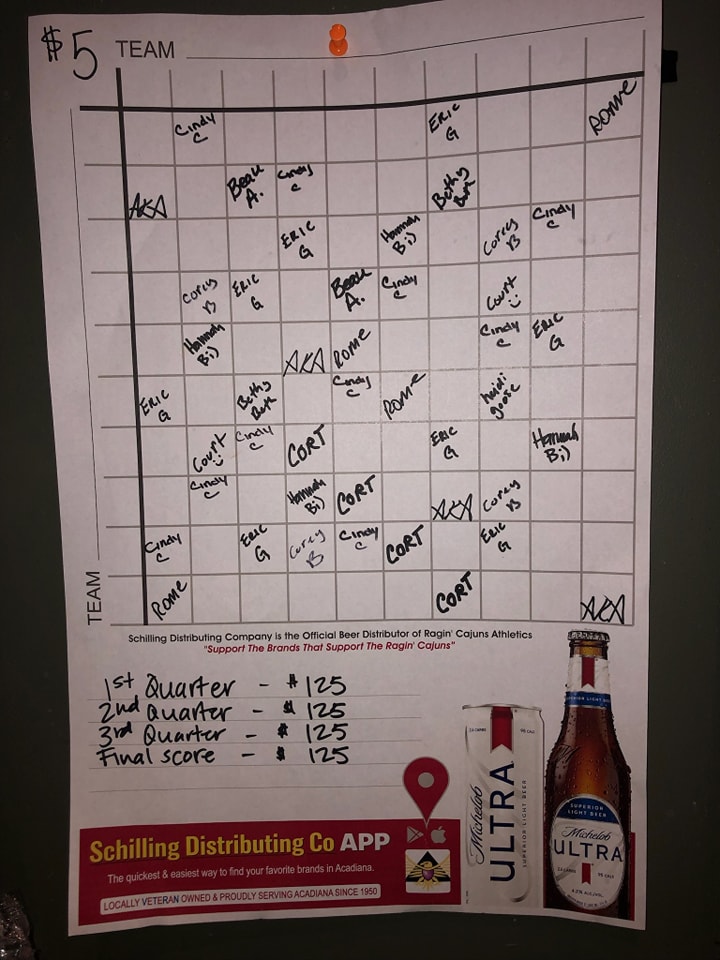 $5 TEAM
Cindy C ERIC G ROME
AKA Beau A. Cindy C Bethy Ruth
ERIC G Hannah B:) Corey B Cindy C
Corey B ERIC G Beau A. Cindy C Court :)
Hannah B:) AKA ROME Cindy C ERIC G
ERIC G Bethy Ruth Cindy C ROME heidi goose
Court :) Cindy C CORT ERIC G Hannah B:)
Cindy C Hannah B:) CORT AKA Corey B
Cindy C ERIC G Corey B Cindy C CORT ERIC G
ROME CORT AKA
TEAM
Schilling Distributing Company is the Official Beer Distributor of Ragin' Cajuns Athletics
"Support The Brands That Support The Ragin' Cajuns"
1st Quarter - $ 125
2nd Quarter - $ 125
3rd Quarter - $ 125
Final score - $ 125
Schilling Distributing Co APP
The quickest & easiest way to find your favorite brands in Acadiana.
LOCALLY VETERAN OWNED & PROUDLY SERVING ACADIANA SINCE 1950
Michelob
ULTRA
SUPERIOR LIGHT BEER
SUPERIOR
LIGHT BEER
Michelob
ULTRA